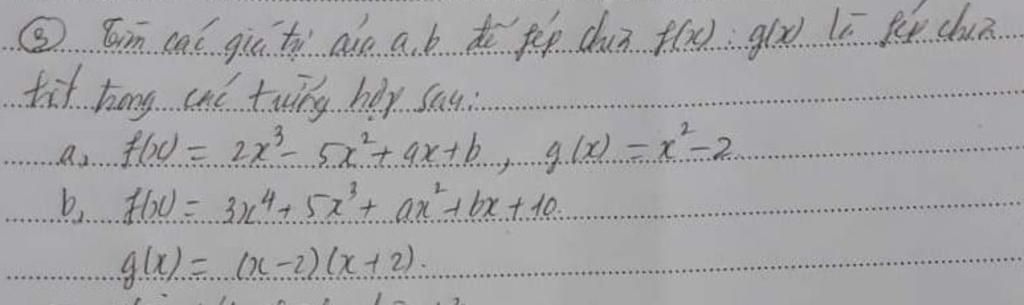 ③ Tìm các giá trị của a, b để phép chia f(x) : g(x) là phép chia
hết trong các trường hợp sau:
a, f(x) = 2x³ - 5x² + ax + b, g(x) = x² - 2
b, f(x) = 3x⁴ + 5x³ + ax² + bx + 10.
g(x) = (x - 2)(x + 2).